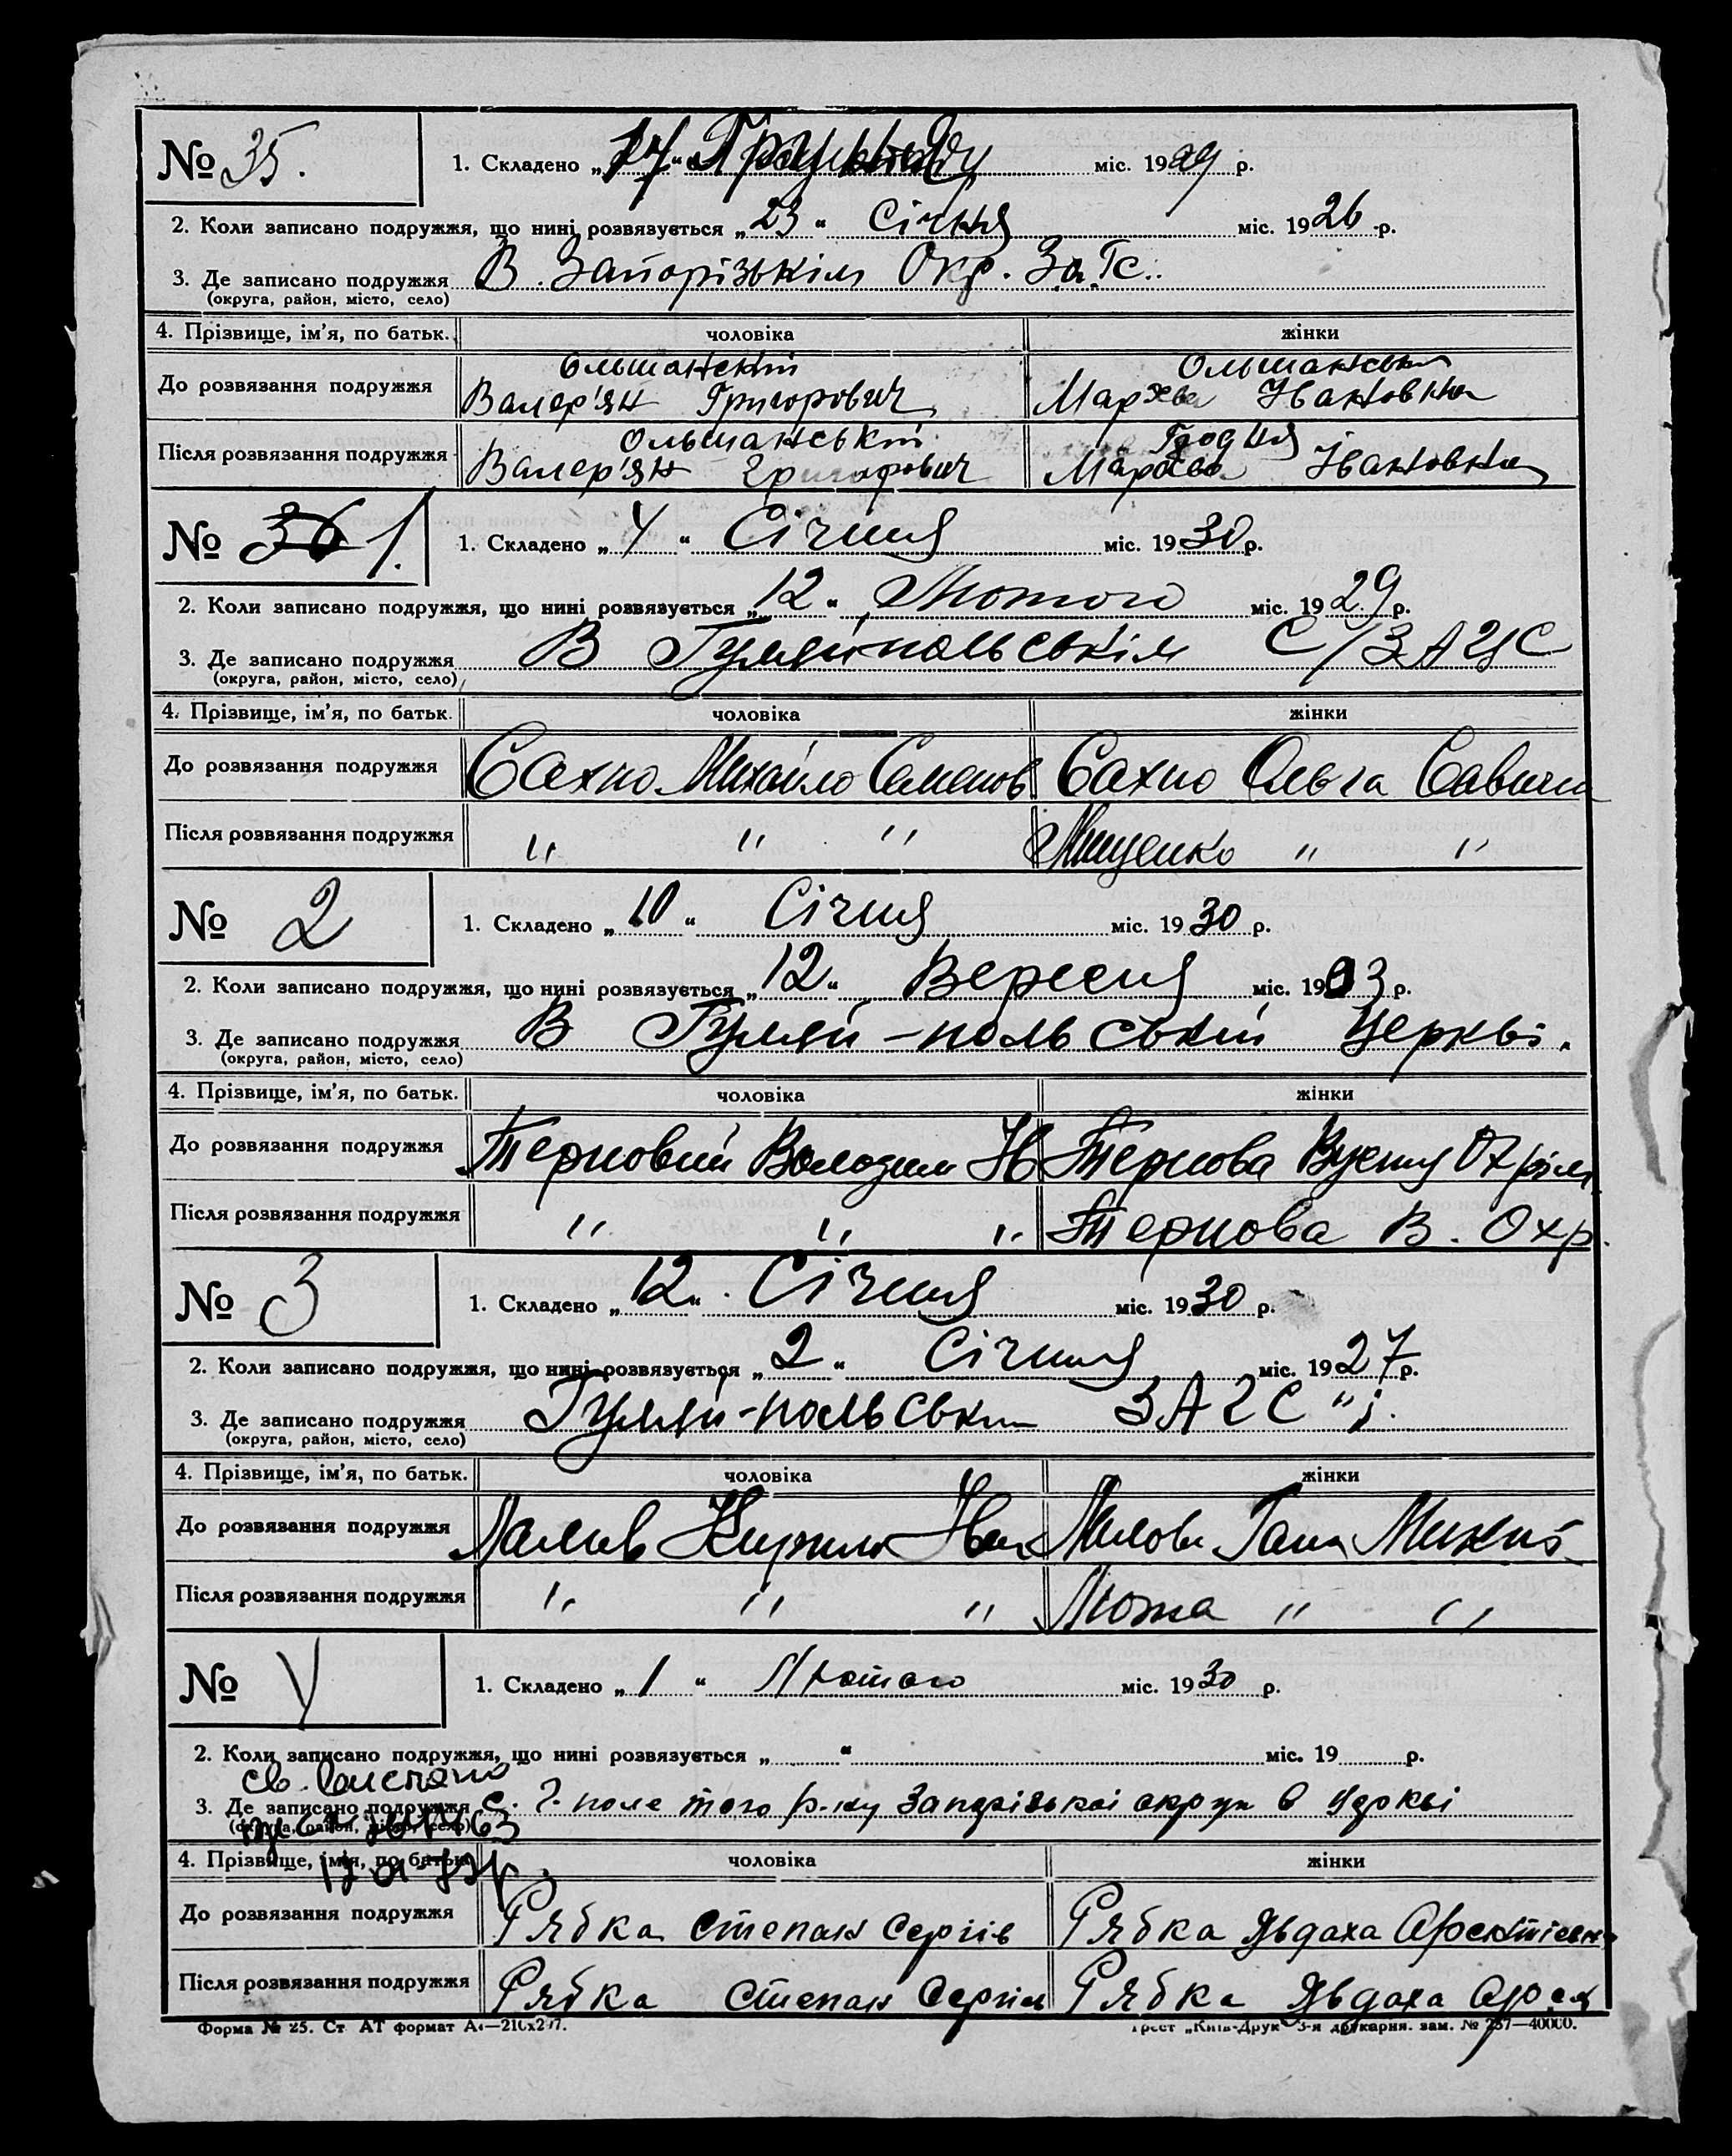 № 35.
1. Складено „17“ Грудня міс. 1929 р.
2. Коли записано подружжя, що нині розвязується „23“ Січня міс. 1926 р.
3. Де записано подружжя В. Запорізькім Окр. ЗаГс..
(округа, район, місто, село)
4. Прізвище, ім'я, по батьк. чоловіка жінки
До розвязання подружжя Ольшанский Валер'ян Григорович Ольшанська Мархва Івановна
Після розвязання подружжя Ольшанський Валер'ян Григорович Мархва Івановна
№ 36 1.
1. Складено „4“ Січня міс. 1930 р.
2. Коли записано подружжя, що нині розвязується „12“ Лютого міс. 1929 р.
3. Де записано подружжя В Гуляй-польськім С/ЗАЦС
(округа, район, місто, село)
4. Прізвище, ім'я, по батьк. чоловіка жінки
До розвязання подружжя Сахно Михайло Семенов Сахно Ольга Савична
Після розвязання подружжя „ „ „ Мищенко „ „
№ 2
1. Складено „10“ Січня міс. 1930 р.
2. Коли записано подружжя, що нині розвязується „12“ Вересня міс. 1903 р.
3. Де записано подружжя В Гуляй-польській Церкві.
(округа, район, місто, село)
4. Прізвище, ім'я, по батьк. чоловіка жінки
До розвязання подружжя Терновий Володим Ив Тернова Охрім
Після розвязання подружжя „ „ „ Тернова В. Охр.
№ 3
1. Складено „12“ Січня міс. 1930 р.
2. Коли записано подружжя, що нині розвязується „2“ Січня міс. 1927 р.
3. Де записано подружжя Гуляй-польськім ЗАГС "і.
(округа, район, місто, село)
4. Прізвище, ім'я, по батьк. чоловіка жінки
До розвязання подружжя Кирило Иван Гана
Після розвязання подружжя „ „ „ Люта „ „
№ 4
1. Складено „1“ Лютого міс. 1930 р.
2. Коли записано подружжя, що нині розвязується „ “ міс. 19 р.
3. Де записано подружжя с. Г-поле того р-ну Запорізької округи в Церкві
(округа, район, місто, село)
4. Прізвище, ім'я, по батьк. чоловіка жінки
До розвязання подружжя Рябка Степан Сергіїв Рябка Явдоха
Після розвязання подружжя Рябка Степан Сергіїв Рябка Явдоха
Форма № 25. Ст. АТ формат А4—210х297. Трест „Київ-Друк“ 3-я друкарня. зам. № 257—40000.